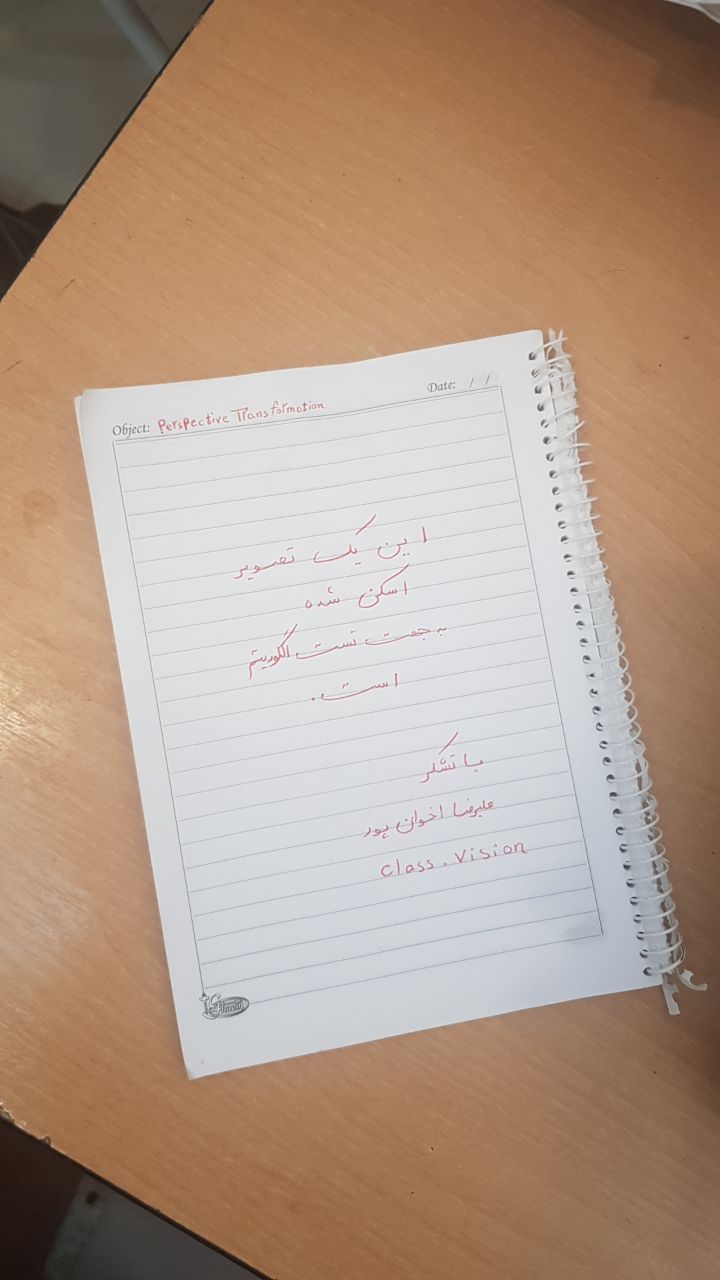 Object: Perspective Transformation
Date: / /
این یک تصویر
اسکن شده
به جهت تست الگوریتم
است.
با تشکر
علیرضا اخوان پور
class.vision